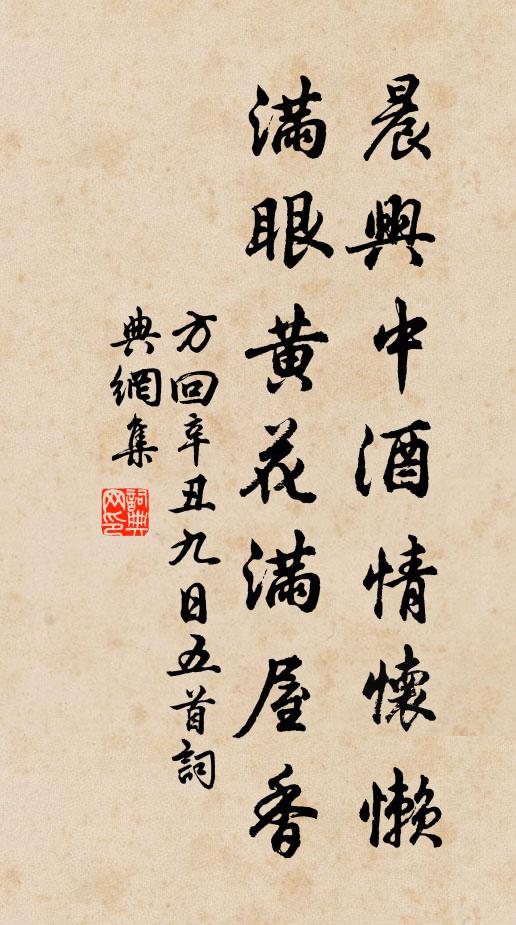 晨興中酒情懷懶
滿眼黄花滿屋香
方回辛丑九日五首詞
典網集
詞典網印